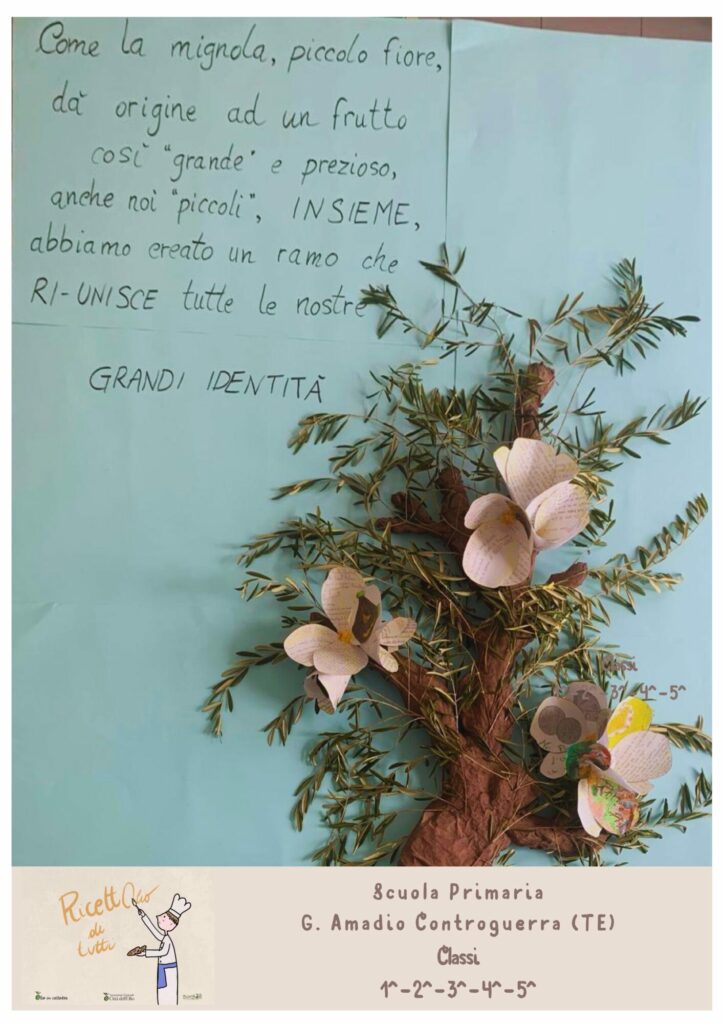 Come la mignola, piccolo fiore,
dà origine ad un frutto
così "grande" e prezioso,
anche noi "piccoli", INSIEME,
abbiamo creato un ramo che
RI-UNISCE tutte le nostre
GRANDI IDENTITÀ
Classi
3^-4^-5^
RicettOlio
di
tutti
Olio in cattedra
Città dell'Olio
Scuola Primaria
G. Amadio Controguerra (TE)
Classi
1^-2^-3^-4^-5^